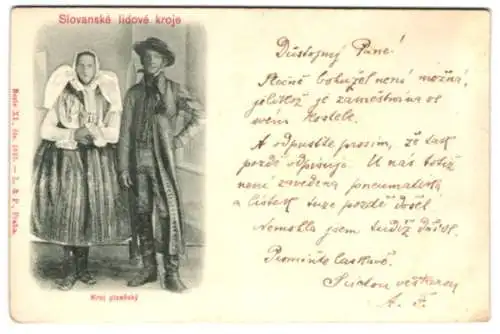 Slovanské lidové kroje
Serie XI. čís. 1897. — L. & P., Praha.
Kroj plzeňský
Důstojný Pane!
Slečně bohužel není možná,
jelikož je zaměstnána ve
svém kostele.
A odpusťte prosím, že tak
pozdě odpisuji. U nás totiž
není zavedena pneumatická
a lístek tuze pozdě došel.
Nemohla jsem tudíž dříve.
Promiňte laskavě.
A. F.